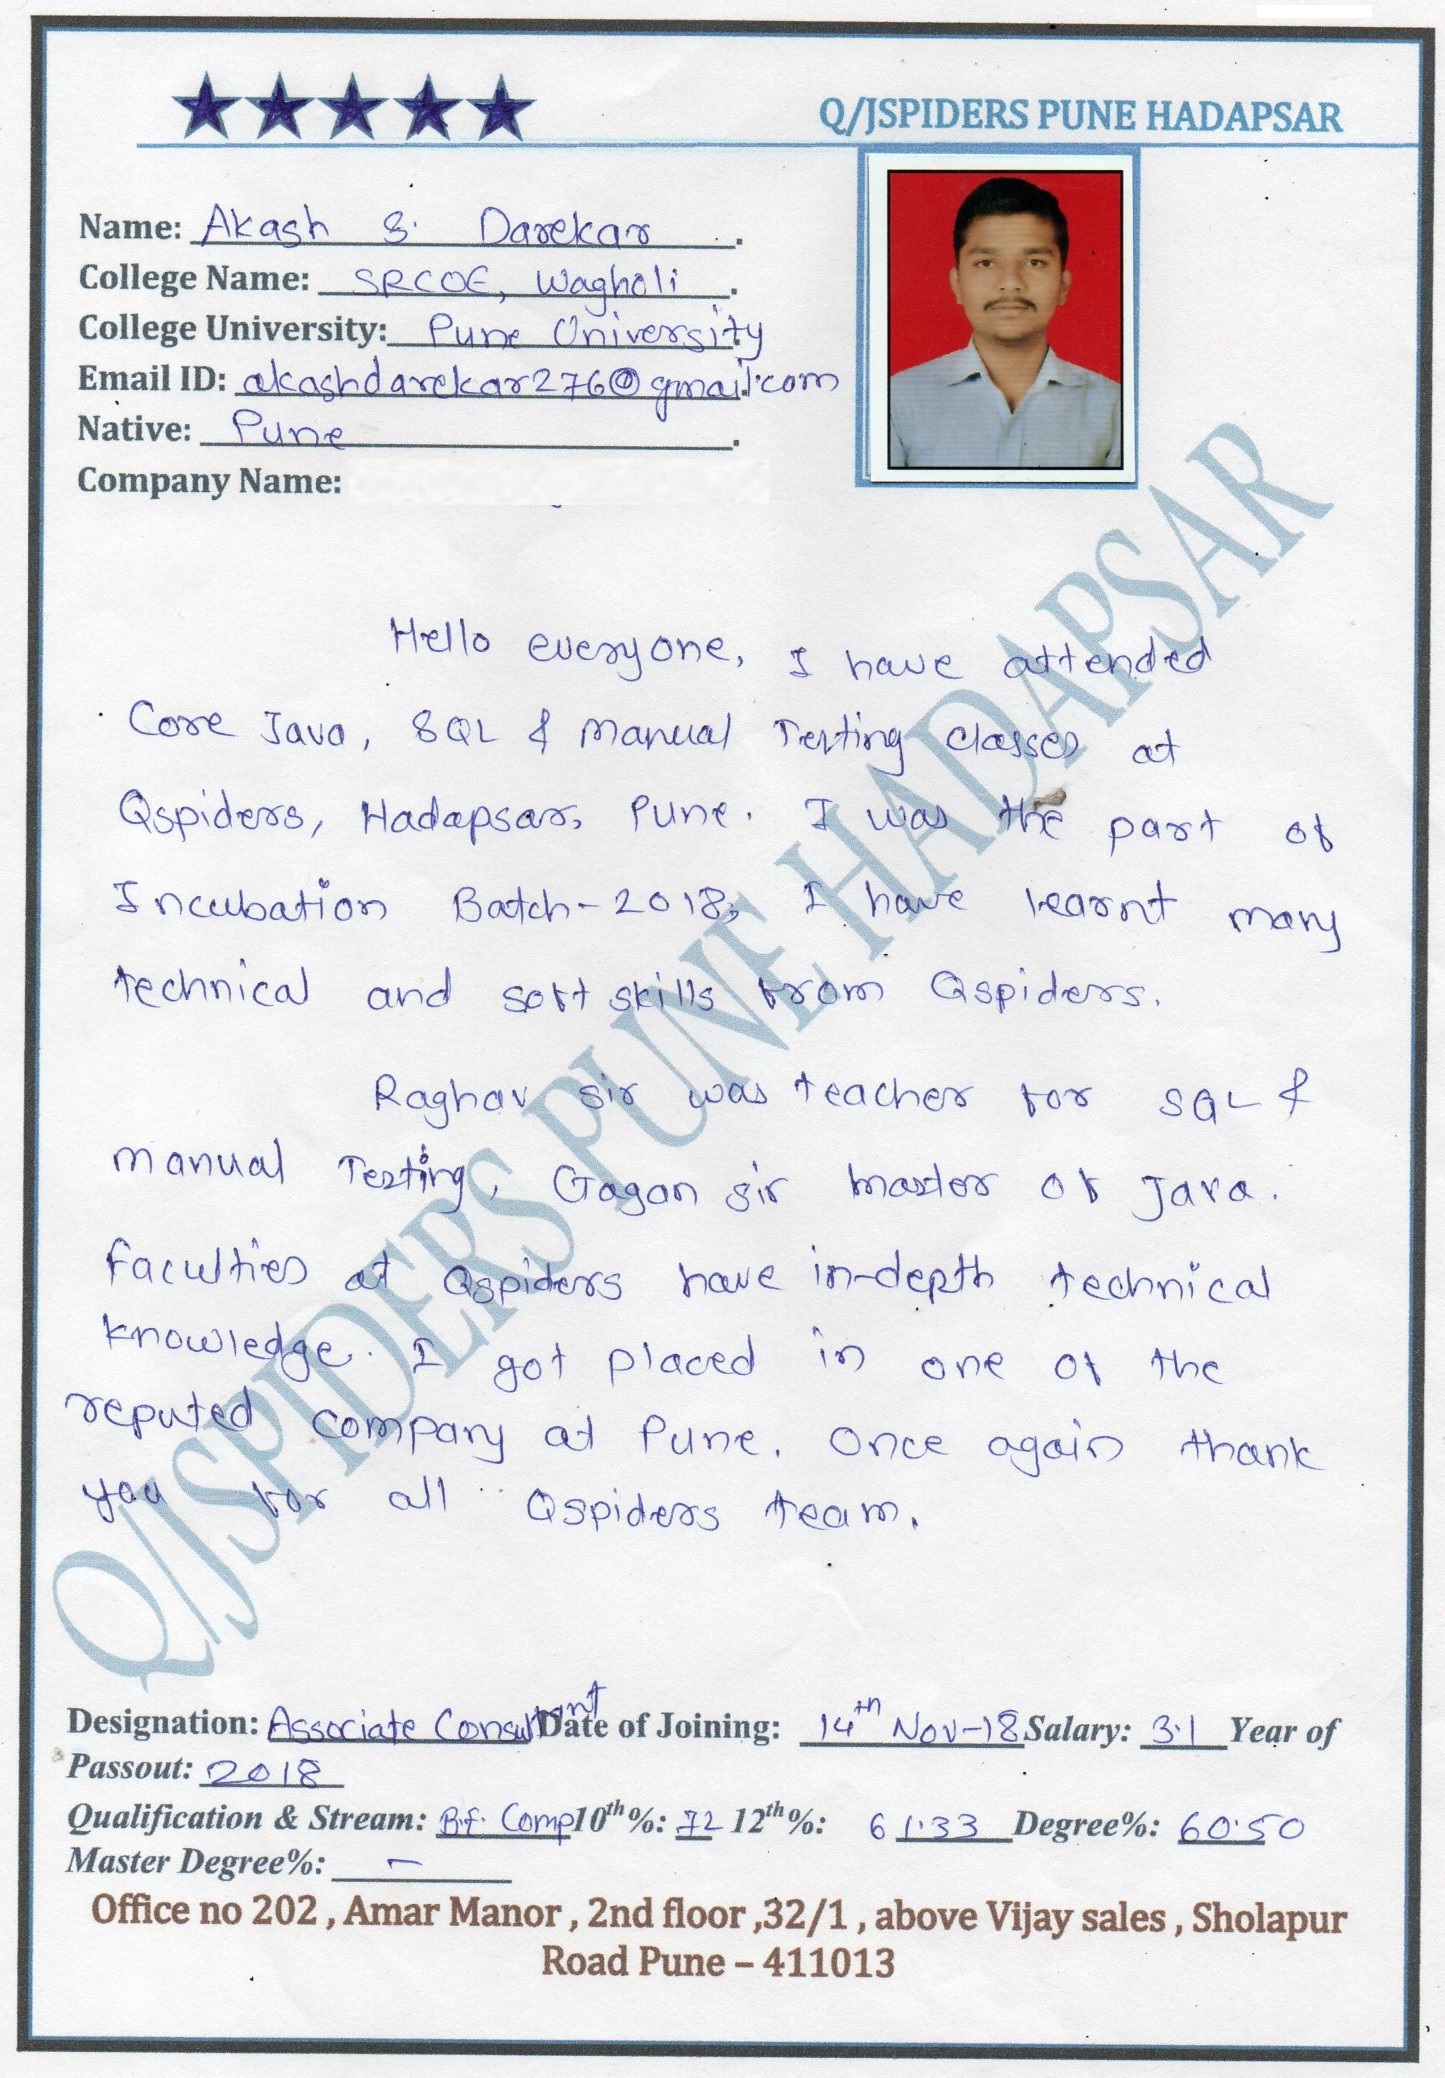 Q/JSPIDERS PUNE HADAPSAR
Name: Akash S. Darekar.
College Name: SRCOE, Wagholi.
College University: Pune University
Email ID: akashdarekar276@gmail.com
Native: Pune.
Company Name:
Hello everyone, I have attended
Core Java, SQL & Manual Testing classes at
Qspiders, Hadapsar, Pune. I was the part of
Incubation Batch-2018, I have learnt many
technical and soft skills from Qspiders.
Raghav sir was teacher for SQL &
Manual Testing, Gagan sir master of Java.
Faculties at Qspiders have in-depth technical
knowledge. I got placed in one of the
reputed company at Pune. Once again thank
you for all Qspiders team.
Q/JSPIDERS PUNE HADAPSAR
Designation: Associate Consultant Date of Joining: 14th Nov-18 Salary: 3.1 Year of
Passout: 2018
Qualification & Stream: B.E. Comp 10th%: 72 12th%: 61.33 Degree%: 60.50
Master Degree%: –
Office no 202 , Amar Manor , 2nd floor ,32/1 , above Vijay sales , Sholapur
Road Pune – 411013